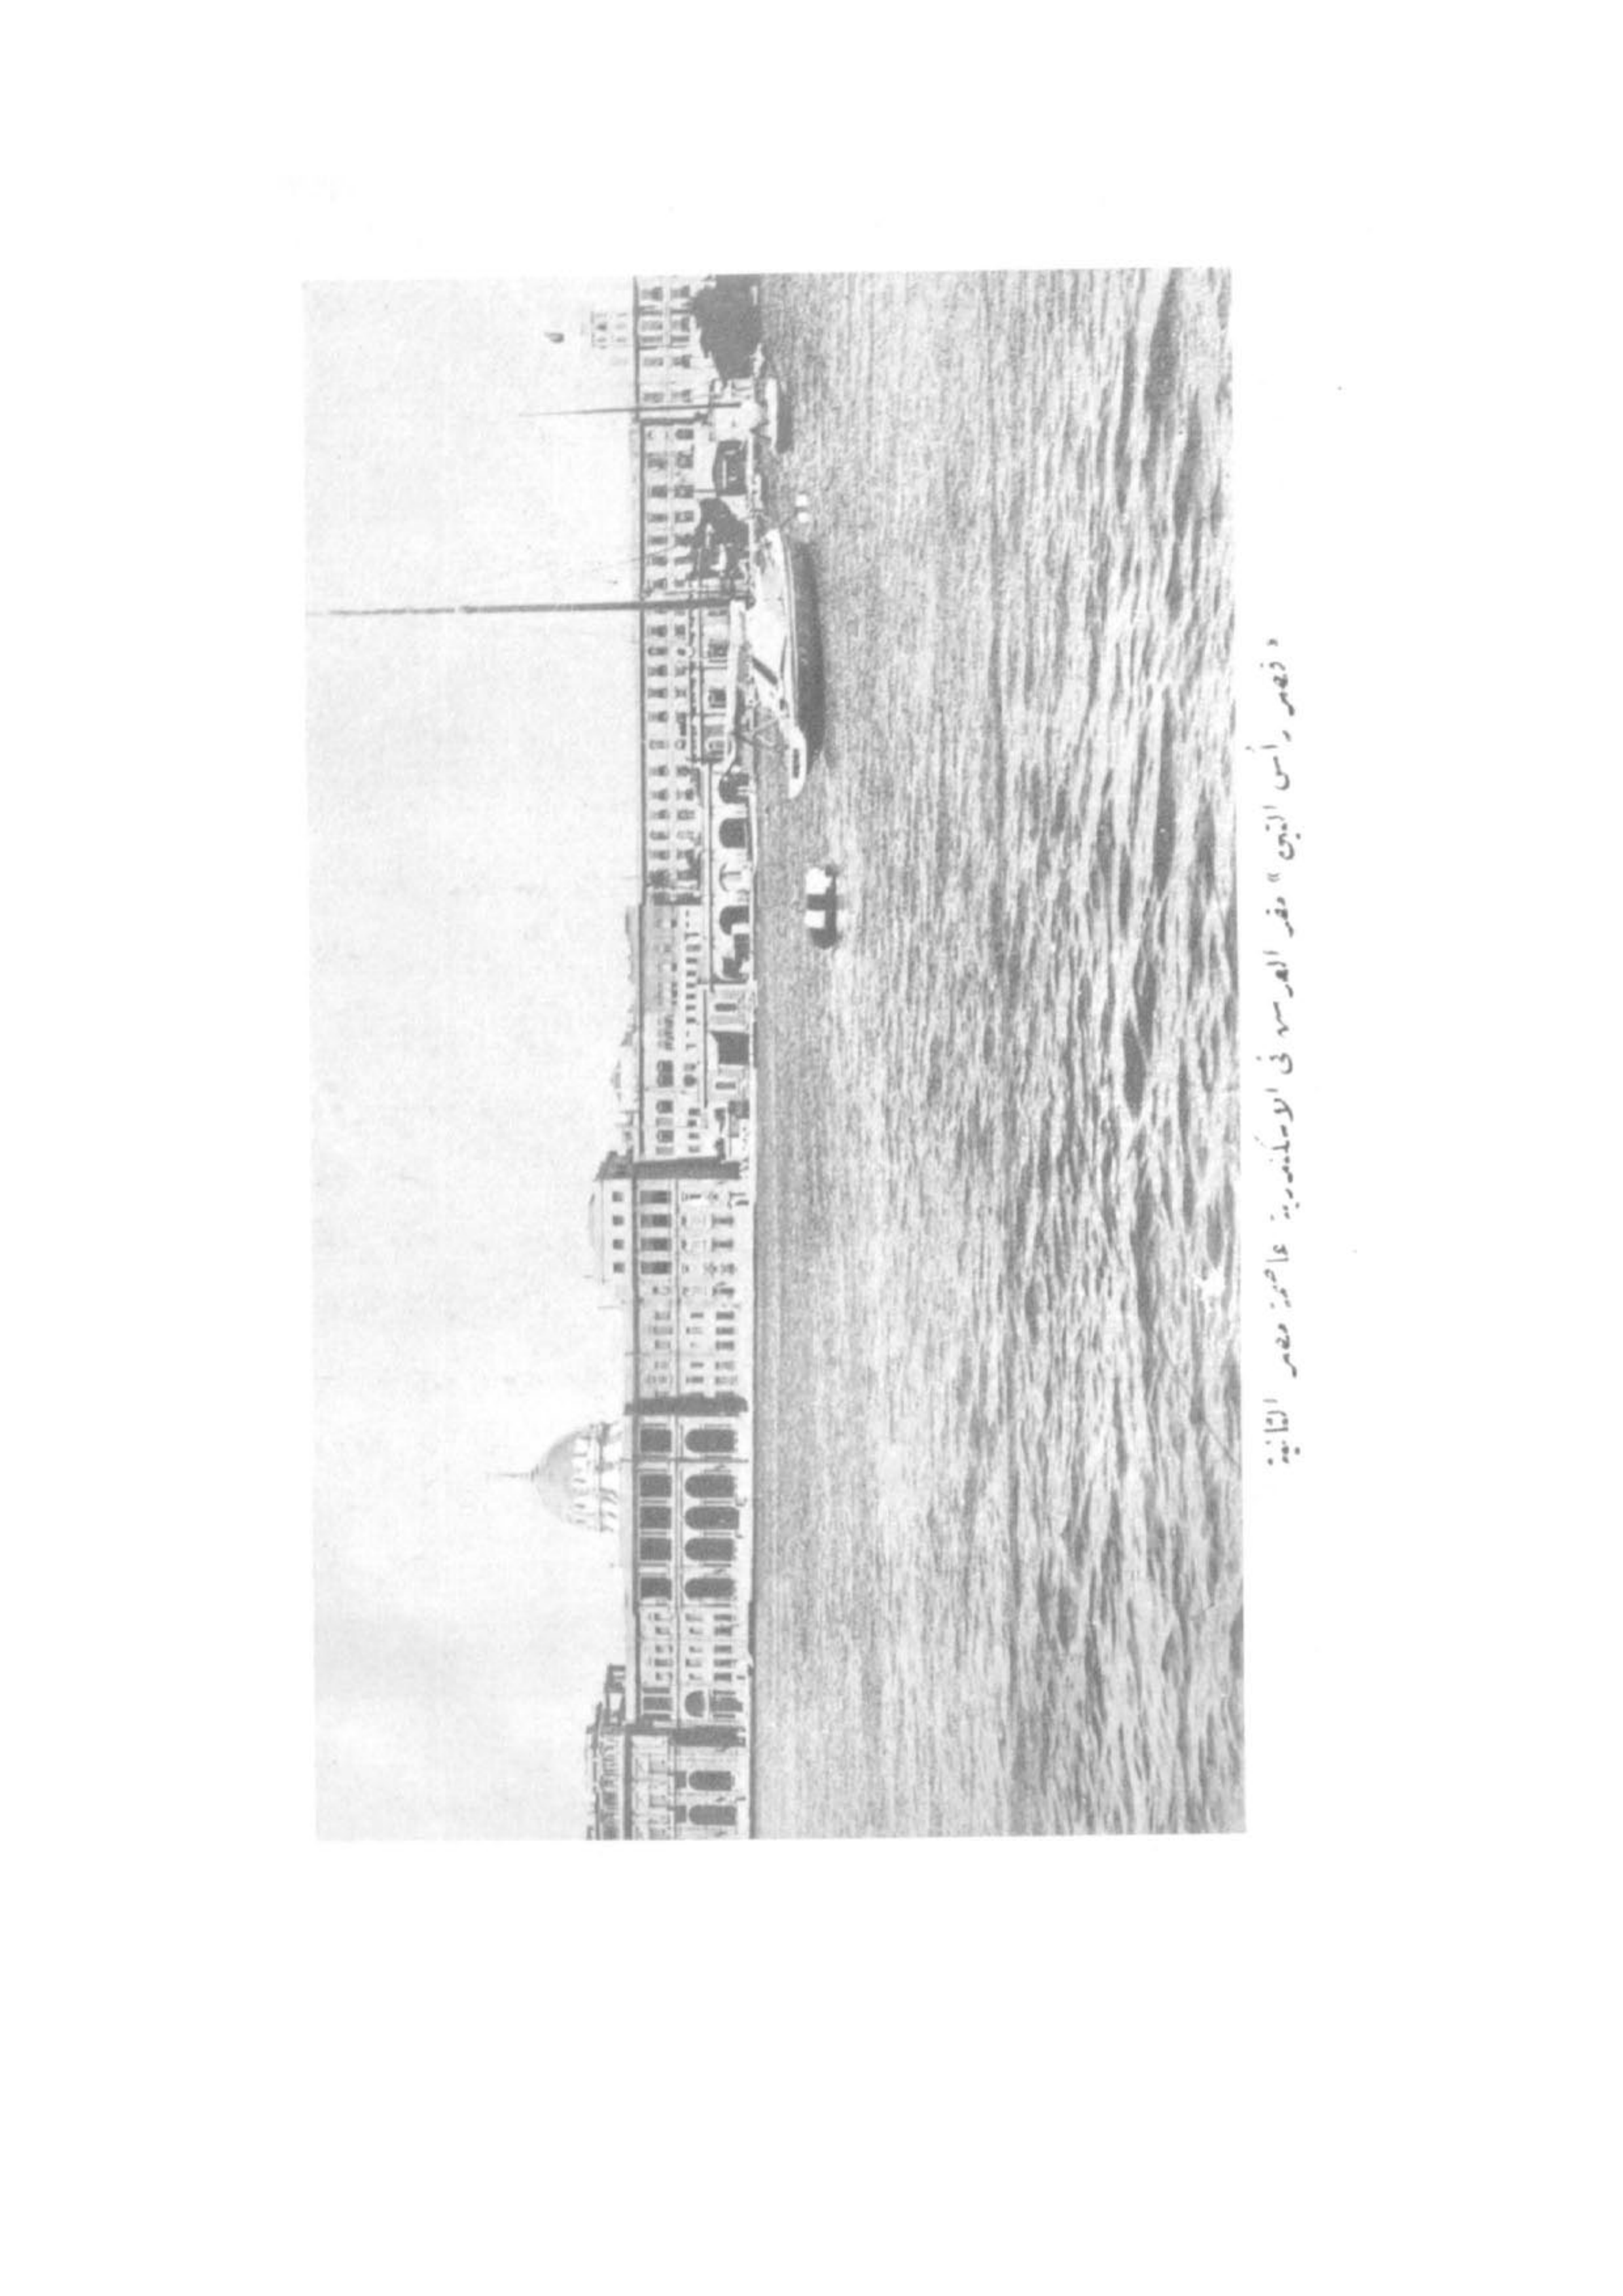 « قصر رأس التين » مقر العرش فى الاسكندرية عاصمة مصر الثانية